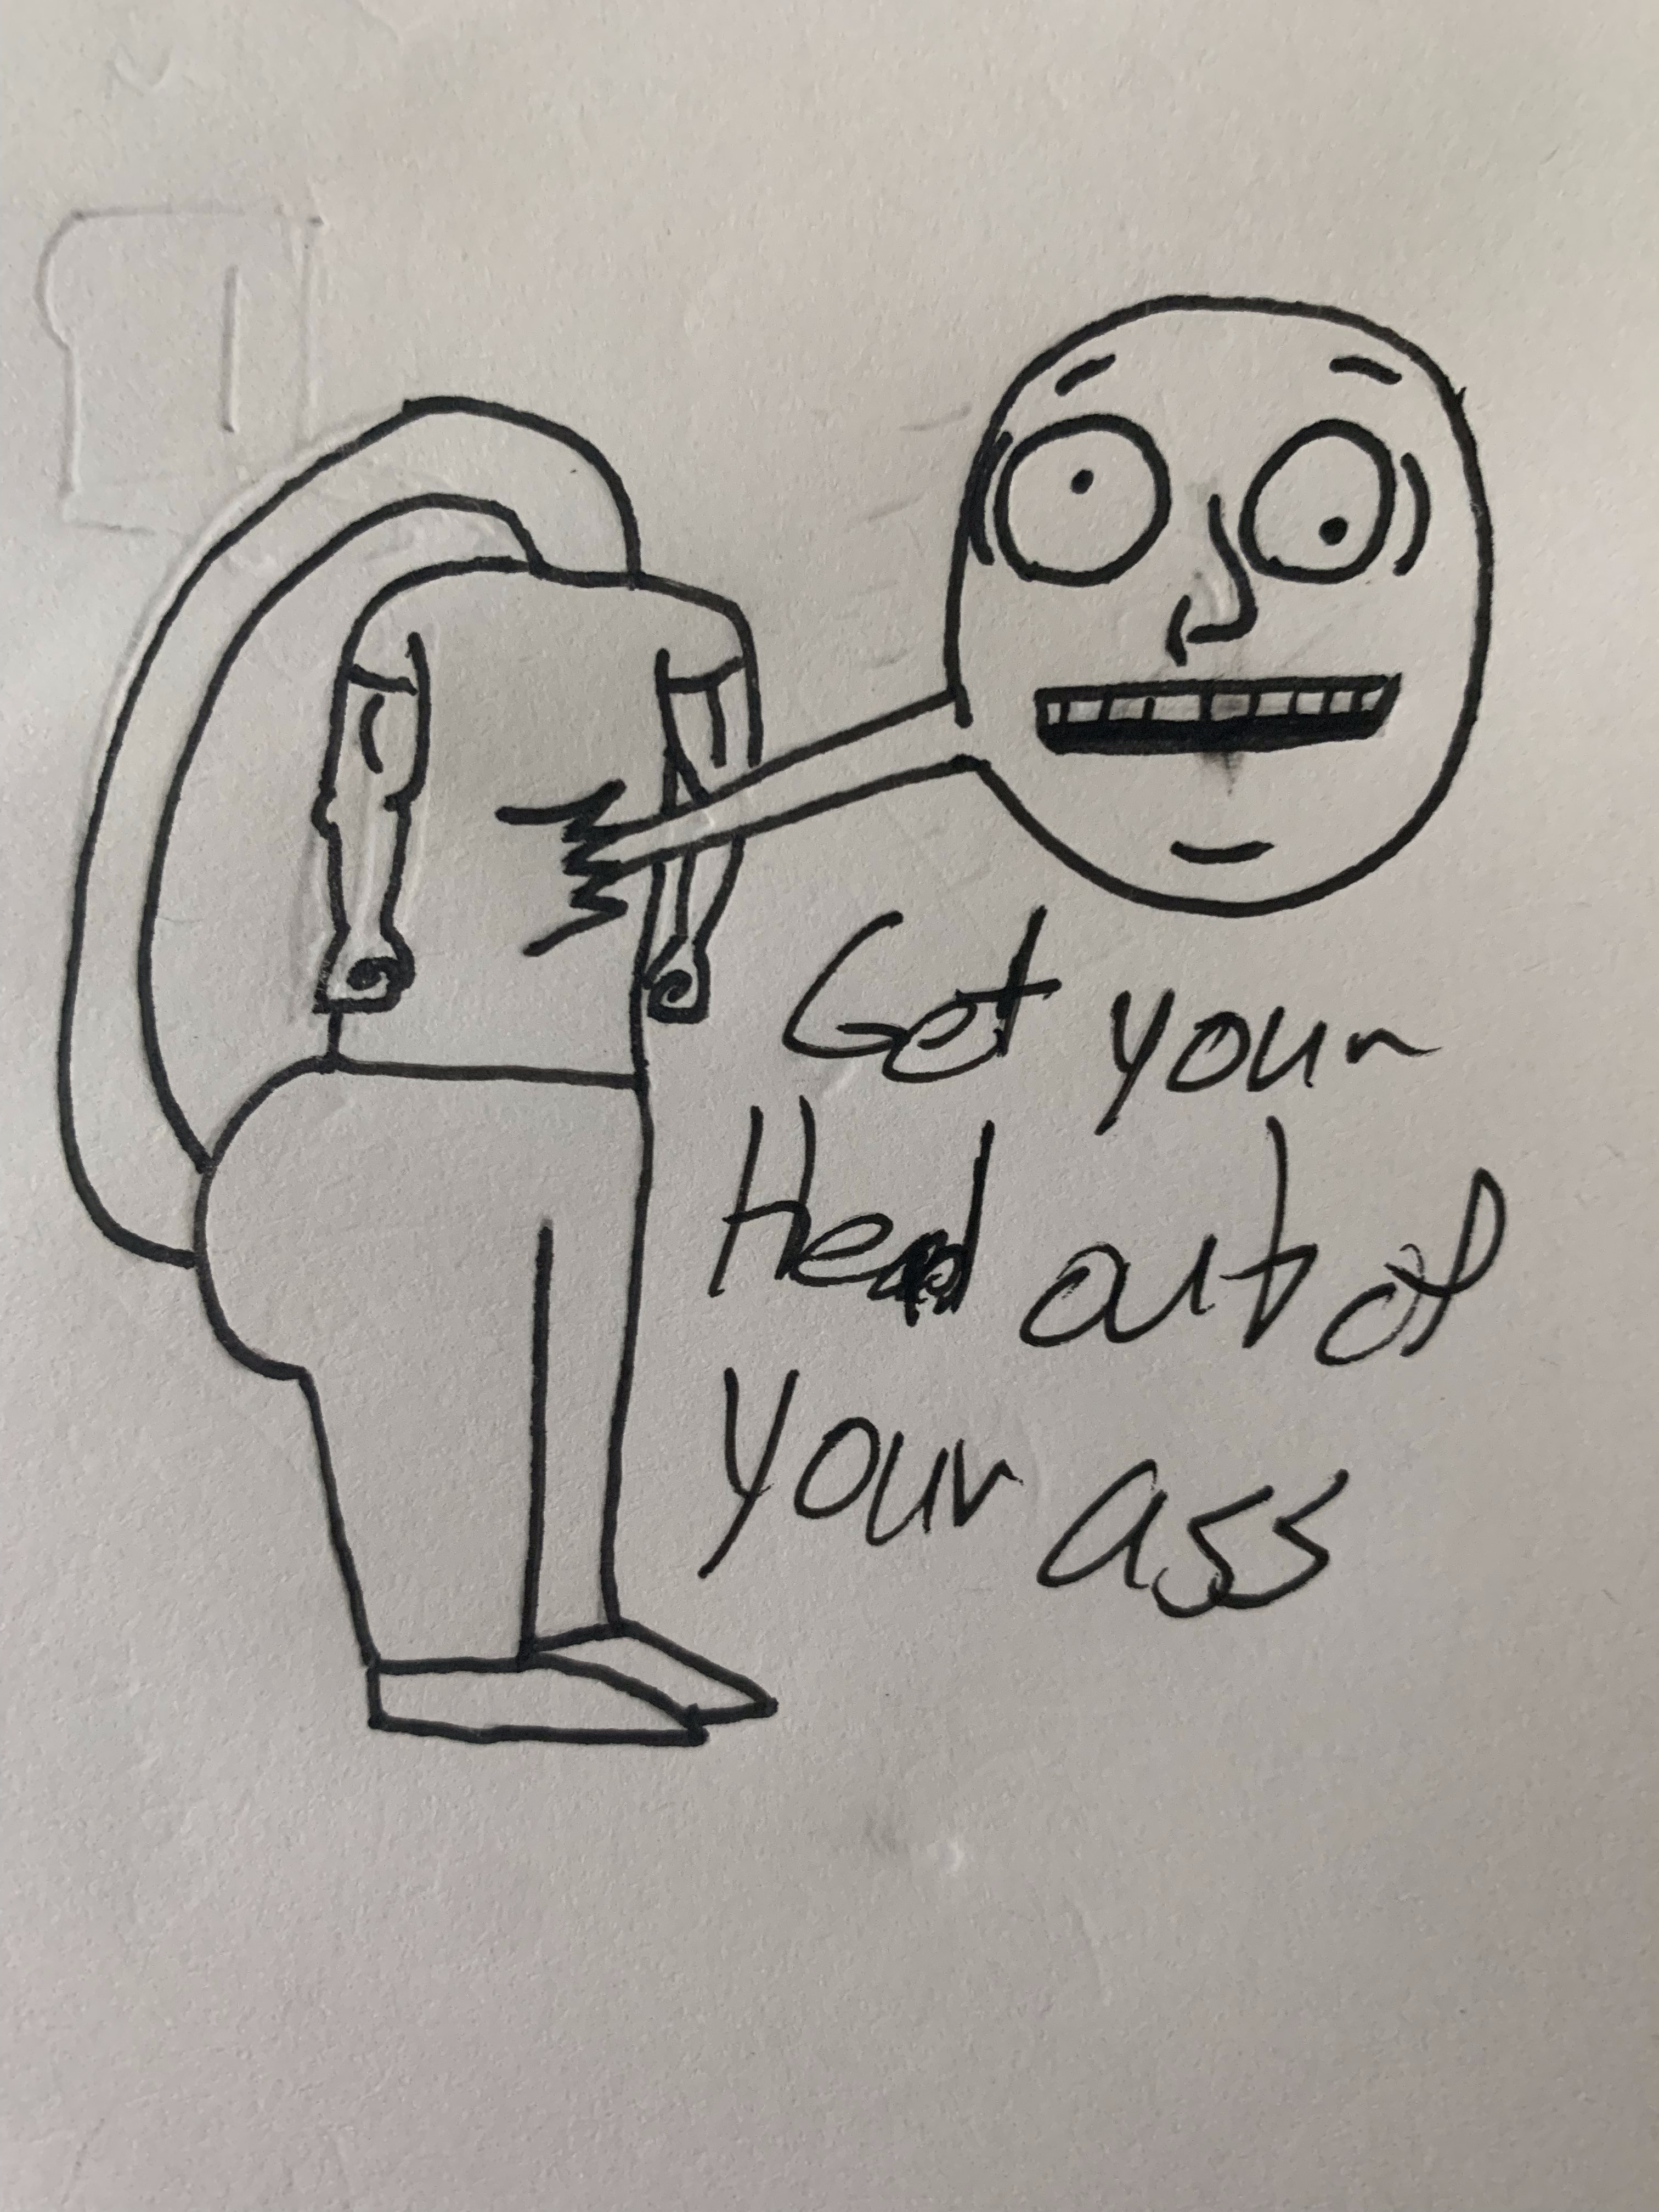 Get your
Head out of
your ass